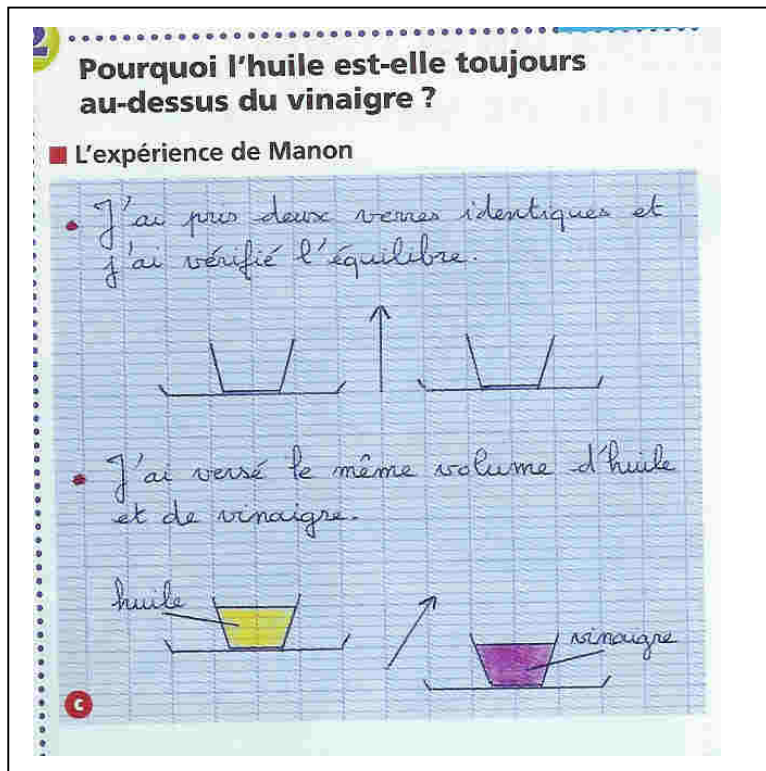 2
Pourquoi l'huile est-elle toujours
au-dessus du vinaigre ?
L'expérience de Manon
• J'ai pris deux verres identiques et
j'ai vérifié l'équilibre.
• J'ai versé le même volume d'huile
et de vinaigre.
huile
vinaigre
C